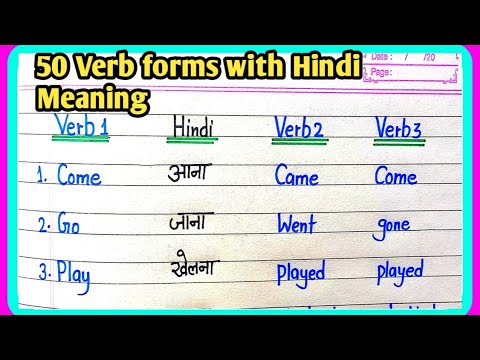 50 Verb forms with Hindi
Meaning
Date: / /20
Page:
Verb 1 Hindi Verb2 Verb3
1. Come आना Came Come
2. Go जाना Went gone
3. Play खेलना played played